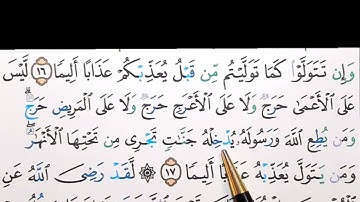 وَإِن تَتَوَلَّوْا۟ كَمَا تَوَلَّيْتُم مِّن قَبْلُ يُعَذِّبْكُمْ عَذَابًا أَلِيمًا ۝١٦ لَّيْسَ
عَلَى ٱلْأَعْمَىٰ حَرَجٌ وَلَا عَلَى ٱلْأَعْرَجِ حَرَجٌ وَلَا عَلَى ٱلْمَرِيضِ حَرَجٌ ۗ
وَمَن يُطِعِ ٱللَّهَ وَرَسُولَهُۥ يُدْخِلْهُ جَنَّٰتٍ تَجْرِى مِن تَحْتِهَا ٱلْأَنْهَٰرُ ۖ
وَمَن يَتَوَلَّ يُعَذِّبْهُ عَذَابًا أَلِيمًا ۝١٧ ۞ لَّقَدْ رَضِىَ ٱللَّهُ عَنِ